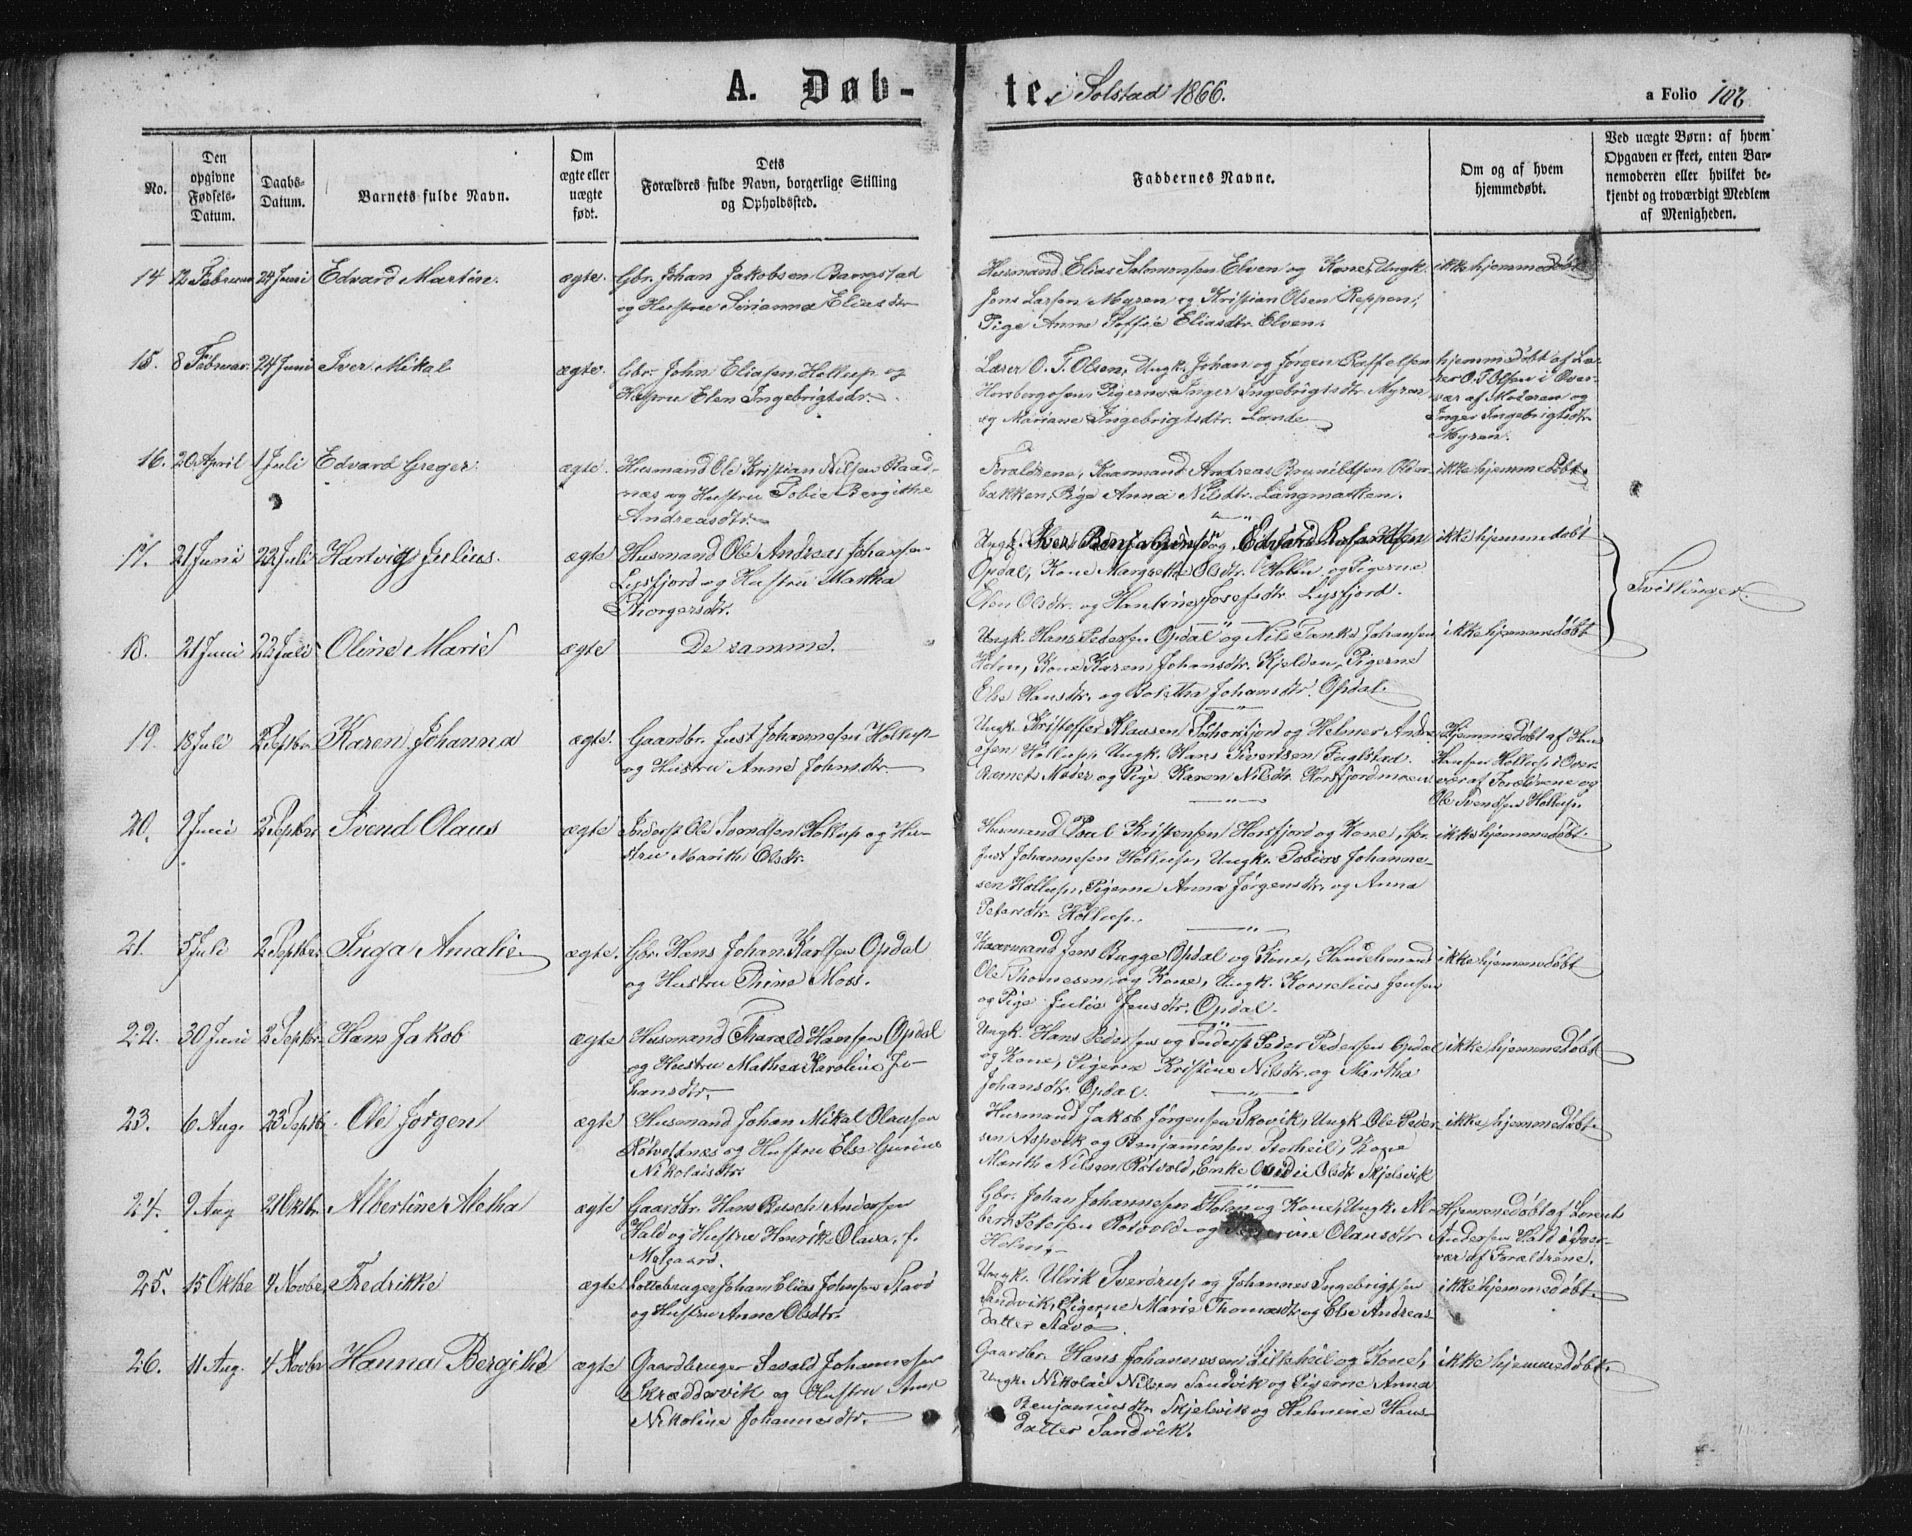 A. Døb-
te i Solstad 1866.
a Folio 106
No.
Den opgivne Fødsels-Datum.
Daabs-Datum.
Barnets fulde Navn.
Om ægte eller uægte født.
Dets
Forældres fulde Navn, borgerlige Stilling
og Opholdssted.
Faddernes Navne.
Om og af hvem
hjemmedøbt.
Ved uægte Børn: af hvem
Opgaven er skeet, enten Bar-
nemoderen eller hvilket be-
kjendt og troværdigt Medlem
af Menigheden.
14 12 Februar 24 Juni Edvard Martin. ægte. Gbr. Johan Jakobsen Bangstad
og Hustru Serianna Eliasdtr
Husmand Elias Salomonsen Elven og Kone, Ungk.
Jens Larsen Myren og Kristian Olsen Reppen,
Pige Anne Soffie Eliasdtr. Elven.
ikke hjemmedøbt
15. 8 Februar. 24 Juni Iver Mikal ægte. Gbr. John Eliasen Hollup og
Hustru Elen Ingebrigtsdtr.
Lærer O. T. Olsen, Ungk. Johan og Jørgen Paffelsen
Pigerne Inger Ingebrigtsdtr. Myren
og Mariane Ingebrigtsdtr. Lande
hjemmedøbt af Læ-
rer O. T. Olsen i Over-
vær af Moderen og
Inger Ingebrigtsdtr.
Myren.
16. 20 April 1 Juli Edvard Greger. ægte. Husmand Ole Kristian Nilsen Raad-
næs og Hustru Tobie Bergitthe
Andreasdtr.
Forældrene, Kaarmand Andreas
bakken, Pige Anna Nilsdtr. Langmarken.
ikke hjemmedøbt.
17. 21 Juni 22 Juli Hartvig Julius. ægte Husmand Ole Andreas Johansen
Lysfjord og Hustru Martha
Thorgersdtr.
Ungk. Iver Benjaminsen og Edvard
Opdal, Kone Margrethe Olsdtr. Holm og Pigerne
Elen Olsdtr. og Hantine Josefsdtr. Lysfjord.
ikke hjemmedøbt
Tvillinger.
18. 21 Juni 22 Juli Oline Marie ægte De samme.
Ungk. Hans Pedersen Opdal og Nils Tanke Johansen
Holm, Kone Karen Johansdtr. Kjelden, Pigerne
Else Hansdtr. og Boletha Johansdtr. Opdal.
ikke hjemmedøbt
19. 18 Juli 2 Septbr. Karen Johanna ægte. Gaardbr. Just Johannesen Hollup
og Hustru Anne Johnsdtr.
Ungk. Kristoffer Klausen Torhorsfjord og Helmer Andre-
sen Hollup, Ungk. Hans Sivertsen Fuglstad.
Barnets Moder og Pige Karen Nilsdtr. Horsfjordmoen
Hjemmedøbt af Hans
Hansen Hollup i Over-
vær af Forældrene og
Ole Svendsen Hollup.
20. 9 Juni 2 Septbr. Svend Olaus ægte Inderst Ole Svendsen Hollup og Hu-
stru Marith Olsdtr.
Husmand Paal Kristensen Horsfjord og Kone, Gbr.
Just Johannesen Hollup, Ungk. Tobias Johanne-
sen Hollup, Pigerne Anna Jørgensdtr. og Anna
Petersdtr. Hollup.
ikke hjemmedøbt.
21. 5 Juli 2 Septbr. Inga Amalie ægte. Gbr. Hans Johan Karlsen Opdal
og Hustru Thine Moss.
Kaarmand Jens Bugge Opdal og Kone, Handelsmand
Ole Thomesen og Kone, Ungk. Kornelius Jensen
og Pige Julie Jensdtr. Opdal.
ikke hjemmedøbt
22. 30 Juni 2 Septbr. Hans Jakob ægte Husmand Tharald Hansen Opdal
og Hustru Mathea Karoline Jo-
hansdtr.
Ungk. Hans Pedersen og Inderst Peder Pedersen Opdal
og Kone, Pigerne Kristine Nilsdtr. og Martha
Johansdtr. Opdal.
ikke hjemmedøbt
23. 6 Aug. 23 Septbr. Ole Jørgen ægte Husmand Johan Mikal Olausen
Rotvoldnæs og Hustru Else Gurine
Nikolaisdtr.
Husmand Jakob Jørgensen Skovik, Ungk. Ole Peder-
sen Aspvik og Benjaminsen Storheil, Kone
Marith Nilsen Rotvold, Enke Olsdtr. Skjelsvik
ikke hjemmedøbt.
24. 9 Aug 21 Oktbr. Albertine Aletha ægte Gaardbr. Hans Busch Andersen
Hald og Hustru Henrikke Olava, f.
Molgaard.
Gbr. Johan Johannesen Holm og Kone, Ungk. Al-
bert Petersen Rotvold og Olausdtr
Holm.
Hjemmedøbt af Lorents
Andersen Hald i Over-
vær af Forældrene.
25. 15 Oktbr 4 Novbr. Fredrikke ægte Jordbruger Johan Elias Johnsen Stavø
og Hustru Anne Olsdtr.
Ungk. Ulrik Sverdrup og Johannes Ingebrigtsen
Sandvik, Pigerne Marie Thomasdtr og Else Andreas-
datter Stavø.
ikke hjemmedøbt.
26. 11 Aug. 4 Novbr Hanna Bergithe ægte Gaardbruger Sesald Johannesen
Skræddervik og Hustru Anne
Nikoline Johannesdtr.
Gaardbr. Hans Johannesen Lilleheil og Kone,
Ungk. Nikolai Nilsen Sandvik og Pigerne Anna
Benjaminsdtr. Skjelsvik og Helmine Hans-
datter Sandvik.
ikke hjemmedøbt.